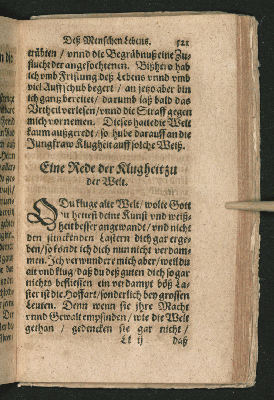 Deß Menschen Lebens. 521
trübten / vnnd die Begräbnuß eine Zu-
flucht der angefochtenen. Bißhero hab
ich vmb Fristung deß Lebens vnnd vmb
viel Auffschub begert / an jetzo aber bin
ich gantz bereitet / darumb laß bald das
Vrtheil verlesen / vnnd die Straff gegen
mich vornemen. Dieses hatte die Welt
kaum außgeredt / so hube darauff an die
Jungfraw Klugheit auff solche Weiß.
Eine Rede der Klugheit zu
der Welt.
O Du kluge alte Welt / wolte Gott
du hettest deine Kunst vnd weiß-
heit besser angewandt / vnd nicht
den stinckenden Lastern dich gar erge-
ben / so köndt ich dich nun nicht verdam-
men. Ich verwundere mich aber / weil du
alt vnd klug / daß du deß guten dich so gar
nichts beflissen ein verdampt böß La-
ster ist die Hoffart / sonderlich bey grossen
Leuten. Denn wenn sie ihre Macht
vnnd Gewalt empfinden / wie die Welt
gethan / gedencken sie gar nicht /
Ll ij daß